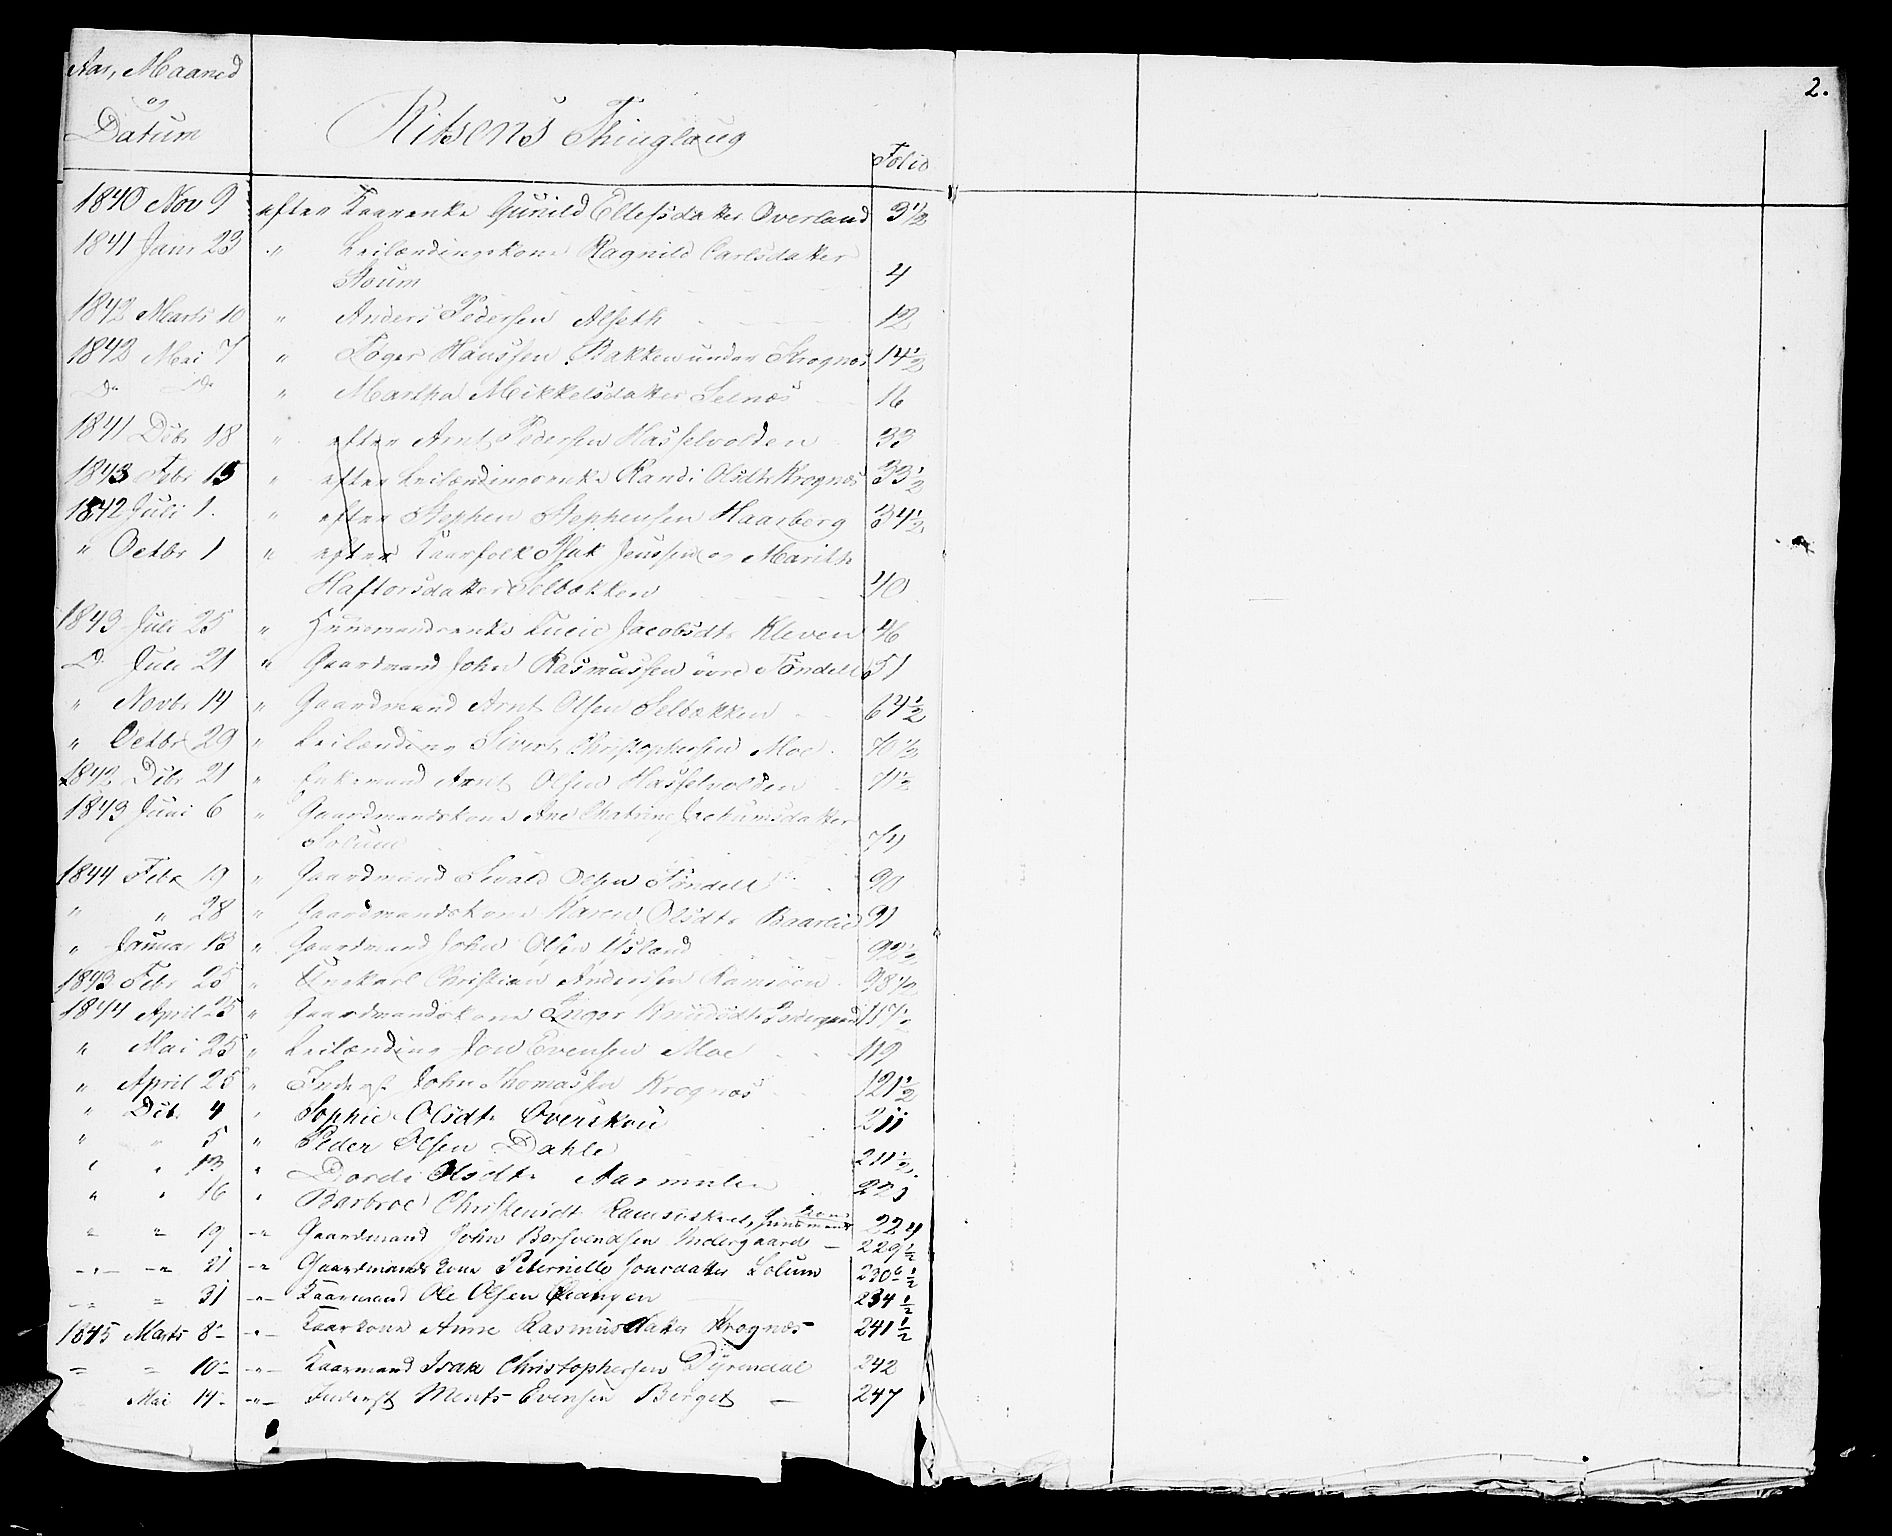 Aar, Maaned
og
Datum
Ritsens Thinglaug
Folio
2.
1840 Nov 9 efter Kaarenke Gunild Ellefsdatter Overland 3 1/2
1841 Janr 23 " Leilændingskone Ragnild Carlsdatter
Stoum 4
1842 Marts 10 " Anders Pedersen Alseth 12
1842 Mai 7 " Hanssen Bakken under Krognæs 14 1/2
Do Do " Martha Mikkelsdatter Selnæs 16
1841 Dcbr 18 " efter Arnt Pedersen Hasselvolden 33
1843 Febr 15 " efter Leilændingsenke Randi Olsdtr Krognæs 33 1/2
1842 Juli 1. " efter Stephen Stephensen Haarberg 34 1/2
" Octbr 1 " efter Kaarfolk Isak Jenssen og Marith
Haftorsdatter Selbækken 40
1843 Juli 25 " Huusmandsenke Lucie Jacobsdtr Kleven 46
D. Juli 21 " Gaardmand John Rasmussen övre Tøndell 51
" Novbr 14 " Gaardmand Arnt Olsen Selbækken 64 1/2
" Octbr 29 " Leilænding Sivert Christophersen Moe 70 1/2
1842 Dcbr 21 " Enkemand Arnt Olsen Hasselvolden 71 1/2
1843 Juni 6 " Gaardmandskone Ane Chatrine Jochumsdatter
Solum 74
1844 Febr 19 " Gaardmand Sivald Olsen Tøndell 90
" " 28 " Gaardmandskone Karen Olsdtr Baarlid 91
" Januar 18 " Gaardmand John Olsen Ysland 92 1/2
1843 Febr 25 " Ungkarl Christian Anderssen Ramsöen 98 1/2
1844 April 25 " Gaardmandskone Inger Knudsdtr 117 1/2
" Mai 25 " Leilænding Jon Evensen Moe 119
" April 25 " Inderst John Thomassen Krognæs 121 1/2
" Dcb. 4 " Sophie Olsdtr Overskou 211
" " 5 " Peder Olsen Dahle 211 1/2
" " 13 " Dordi Olsdtr Aarmulen 221
" " 16 " Barbroe Christensdt 224
" " 19 " Gaardmand John Indergaard 229 1/2
" " 21 " Gaardmands kone Peternille Jonsdatter Solum 230 1/2
" " 31 " Kaarmand Ole Olsen 234 1/2
1845 Marts 8 " Kaarkone Anne Rasmusdatter Krognæs 241 1/2
" " 10 " Kaarmand Isak Christophersen Dyrendal 242
Mai 14 " Inderst Ments Evensen Berget 247